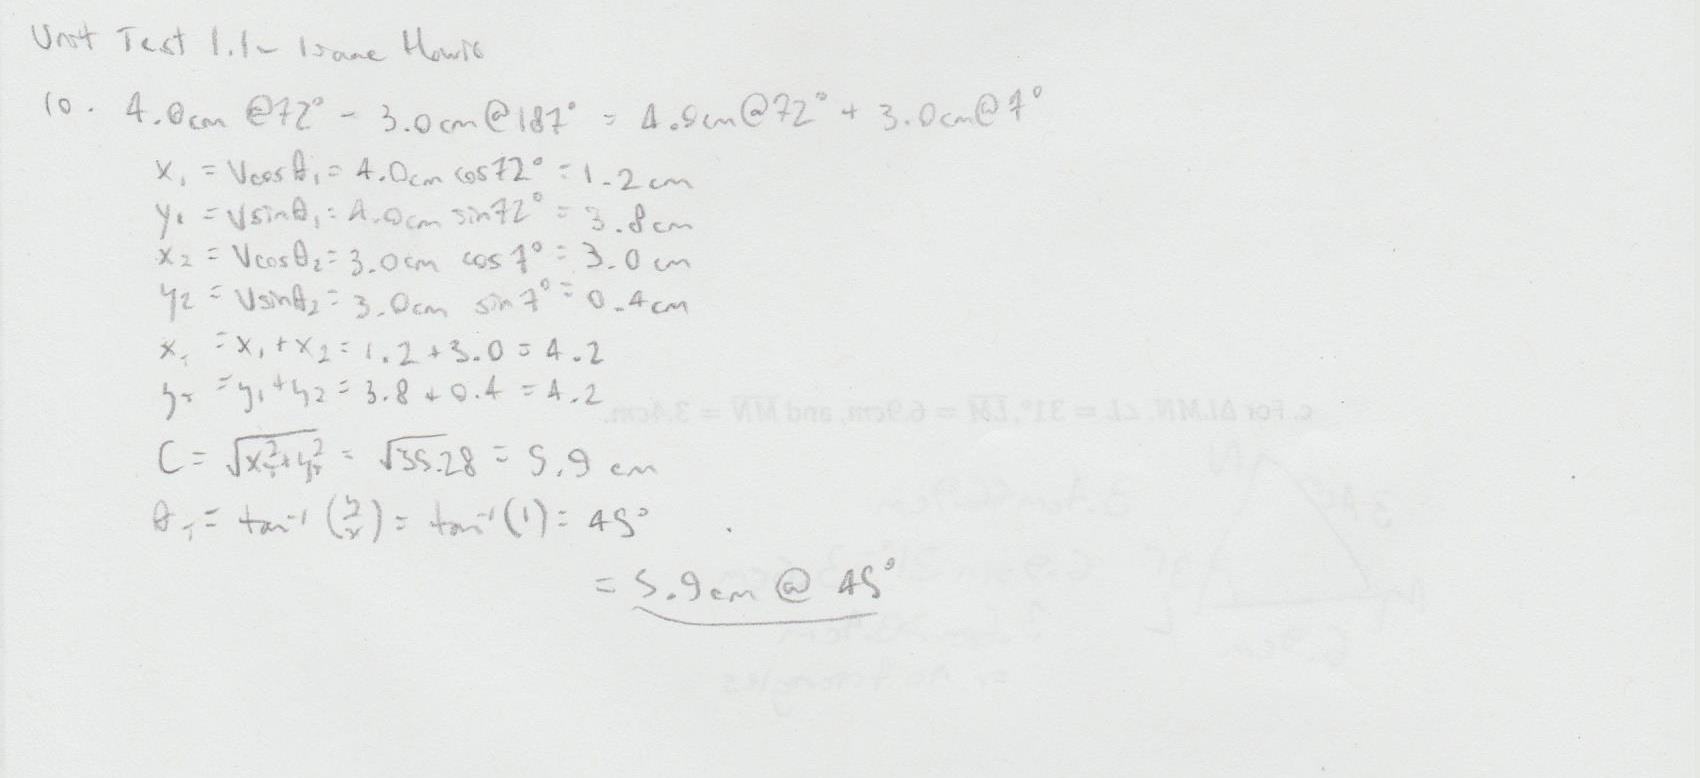 Unit Test 1.1 - Isaac
10. 4.0cm @72° - 3.0cm@187° = 4.0cm@72° + 3.0cm@7°
x₁ = Vcosθ₁ = 4.0cm cos72° = 1.2cm
y₁ = Vsinθ₁ = 4.0cm sin72° = 3.8cm
x₂ = Vcosθ₂ = 3.0cm cos 7° = 3.0cm
y₂ = Vsinθ₂ = 3.0cm sin 7° = 0.4cm
xᵣ = x₁ + x₂ = 1.2 + 3.0 = 4.2
yᵣ = y₁ + y₂ = 3.8 + 0.4 = 4.2
C = √(xᵣ² + yᵣ²) = √35.28 = 5.9 cm
θᵣ = tan⁻¹(y/x) = tan⁻¹(1) = 45°
= 5.9cm @ 45°
c. For ΔLMN, ∠L = 31°, LM = 6.9cm, and MN = 3.4cm.